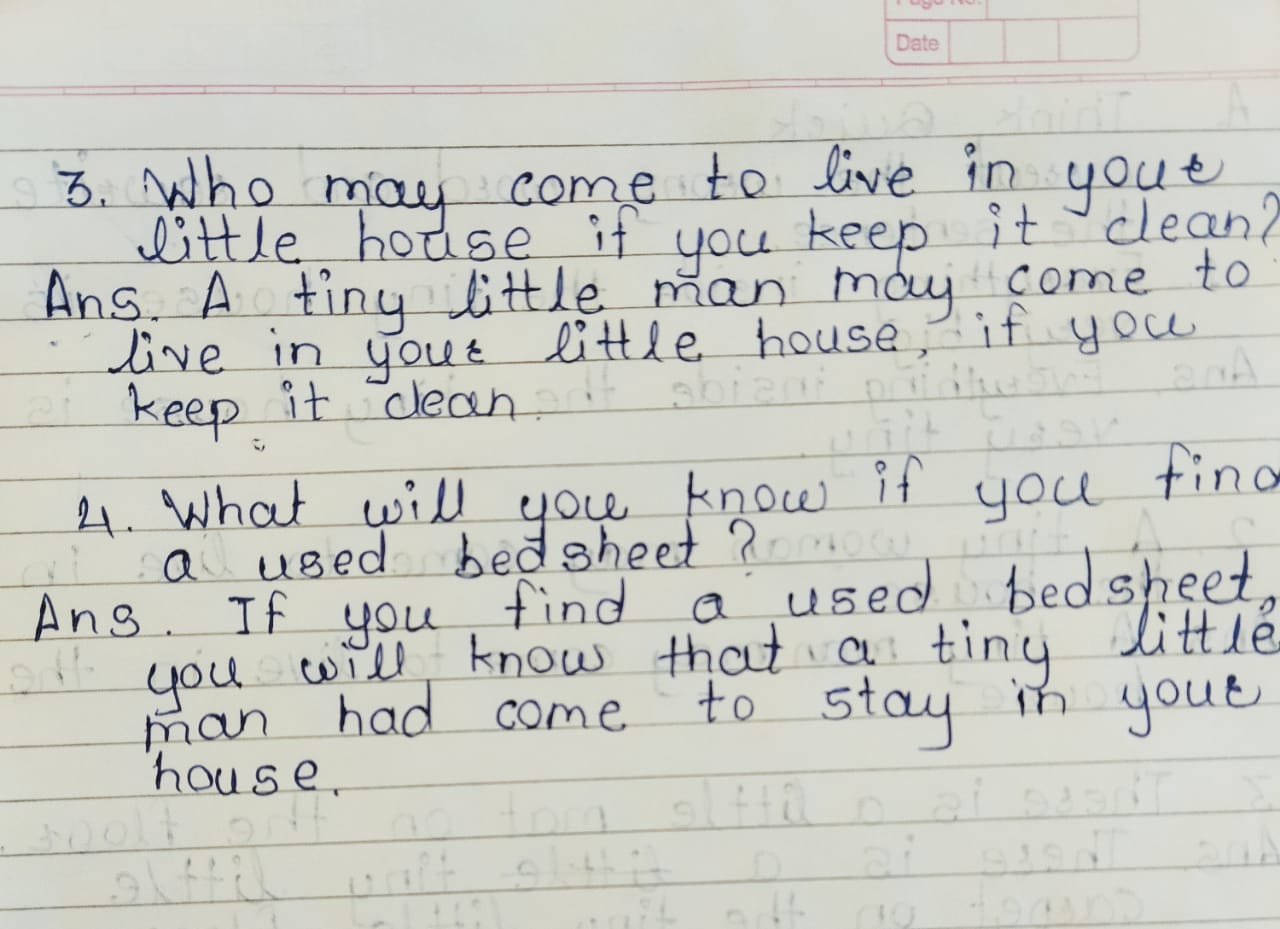 Page No.
Date
3. Who may come to live in your
little house if you keep it clean?
Ans. A tiny little man may come to
live in your little house, if you
keep it clean.
4. What will you know if you find
a used bedsheet?
Ans. If you find a used bedsheet,
you will know that a tiny little
man had come to stay in your
house.